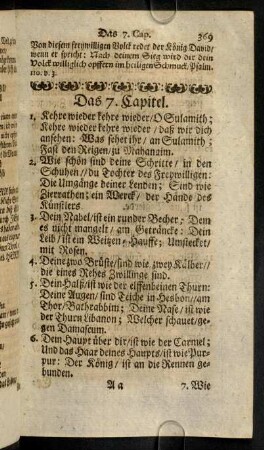 Das 7. Cap. 369
Von diesem freywilligen Volck redet der König David/
wenn er spricht: Nach deinem Sieg wird dir dein
Volck williglich opffern im heiligen Schmuck. Psalm.
110. v. 3.
Das 7. Capitel.
1. Kehre wieder kehre wieder/ O Sulamith;
Kehre wieder kehre wieder/ daß wir dich
ansehen: Was sehet ihr/ an Sulamith;
Fast den Reigen/ zu Mahanaim.
2. Wie schön sind deine Schritte/ in den
Schuhen/ du Tochter des Freywilligen:
Die Umgänge deiner Lenden; Sind wie
Zierrathen; ein Werck/ der Hände des
Künstlers.
3. Dein Nabel/ ist ein runder Becher; Dem
es nicht mangelt/ am Geträncke: Dein
Leib/ ist ein Weitzen-Hauffe; Umstecket/
mit Rosen.
4. Deine zwo Brüste/ sind wie zwey Kälber//
die eines Rehes Zwillinge sind.
5. Dein Halß/ ist wie der elffenbeinen Thurn:
Deine Augen/ sind Teiche in Hesbon// am
Thor/ Bathrabbim; Deine Nase/ ist wie
der Thurn Libanon; Welcher schauet/ ge-
gen Damascum.
6. Dein Haupt über dir/ ist wie der Carmel;
Und das Haar deines Haupts/ ist wie Pur-
pur: Der König/ ist an die Rennen ge-
bunden.
A a 7. Wie